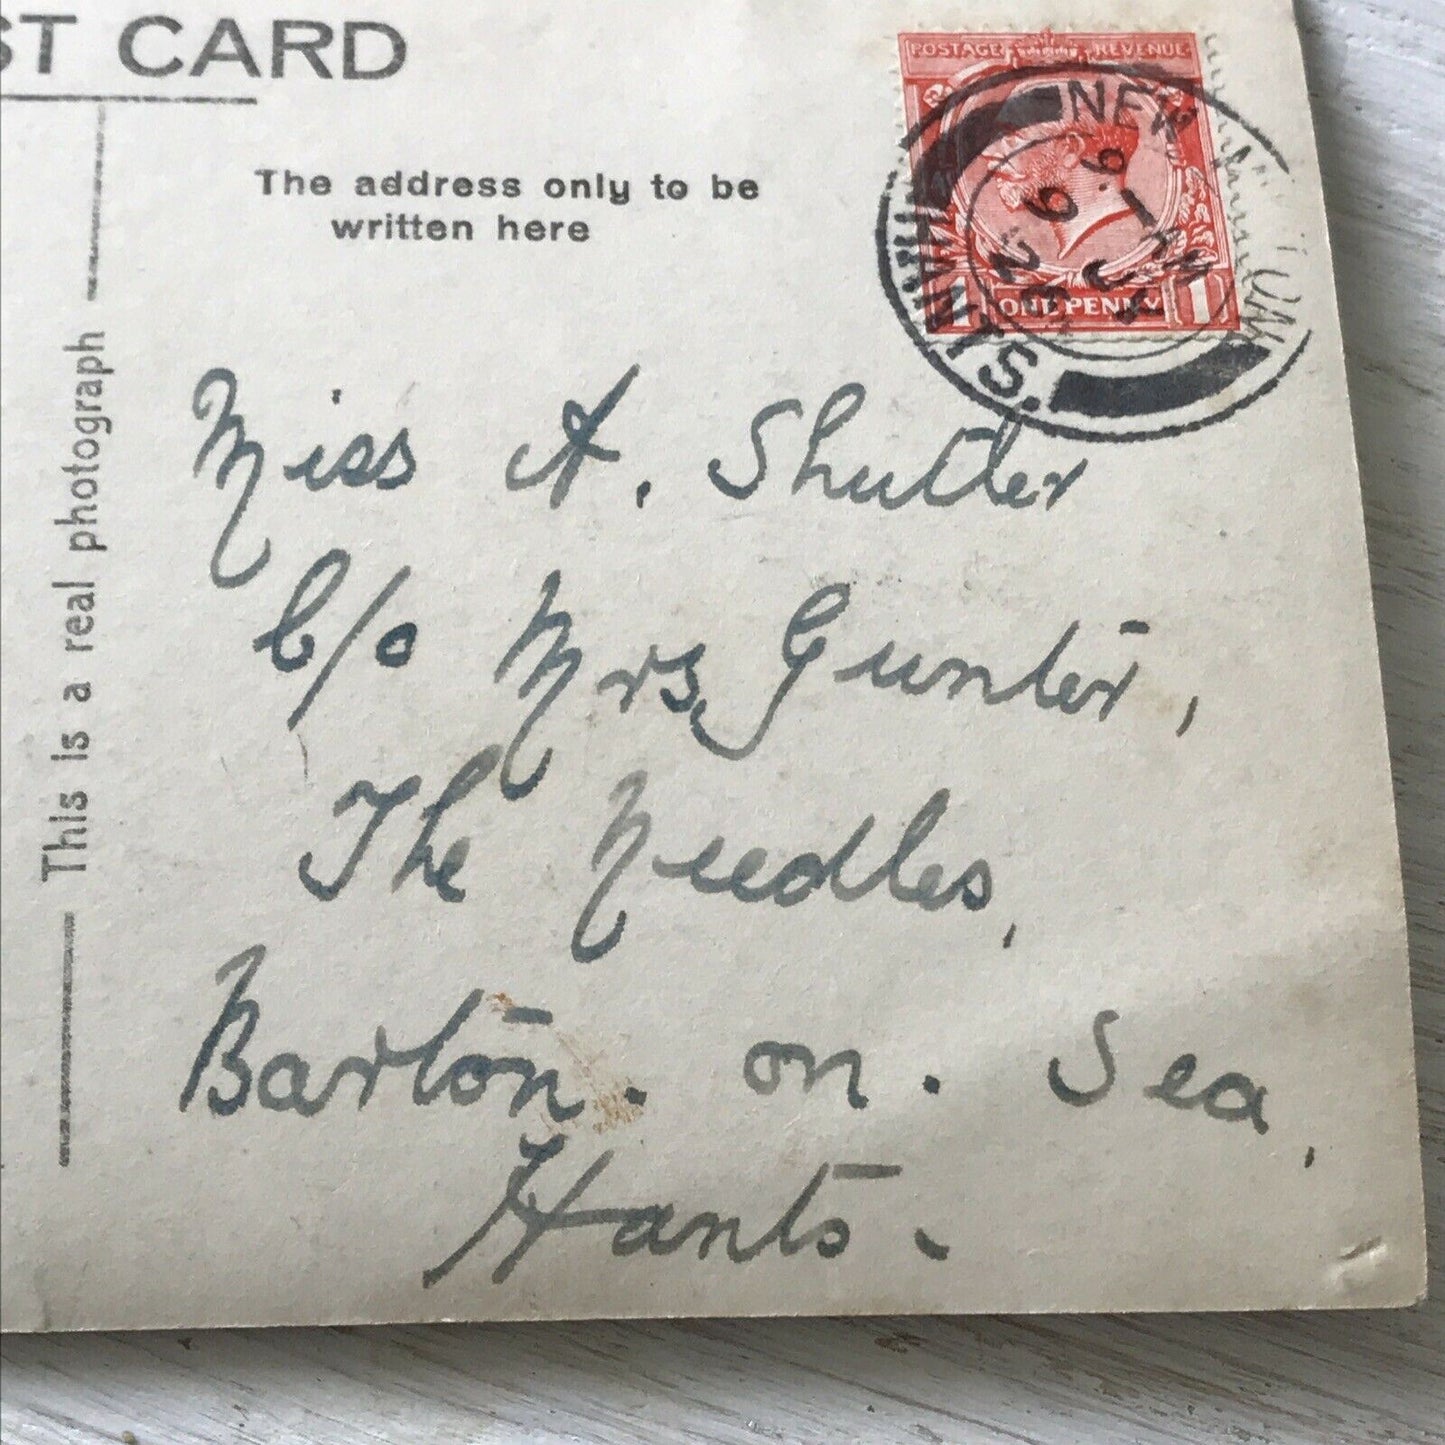 ST CARD
The address only to be
written here
This is a real photograph
POSTAGE REVENUE
1 ONE PENNY 1
NEW MILTON
HANTS.
Miss A. Shutler
C/o Mrs Gunter,
The Needles,
Barton. on. Sea,
Hants.